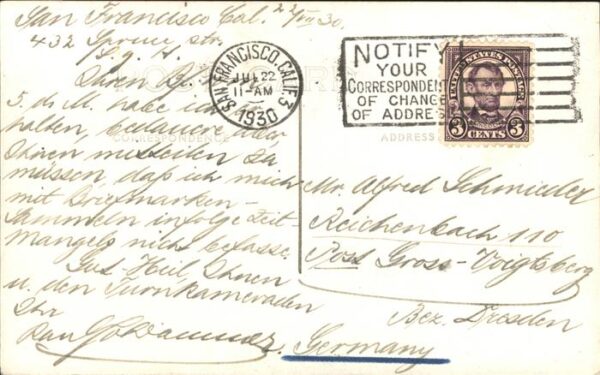 San Francisco Cal. 22/VII 30.
432 Spruce str.
SAN FRANCISCO, CALIF. 3
JUL 22
11-AM
1930
NOTIFY
YOUR
CORRESPONDENT
OF CHANGE
OF ADDRES
UNITED STATES POSTAGE
3 CENTS 3
CORRESPONDENCE
ADDRESS
5. ds M. habe ich
halten, bedauere aber,
Ihnen mitteilen zu
müssen, daß ich mich
mit Briefmarken-
Sammeln infolge Zeit-
Mangels nicht befasse.
Gut Heil, Ihnen
u. den Turnkameraden
Ihr
Mr. Alfred Schmieder
Reichenbach 110
Post Gross-Voigtsberg
Bez. Dresden
Germany